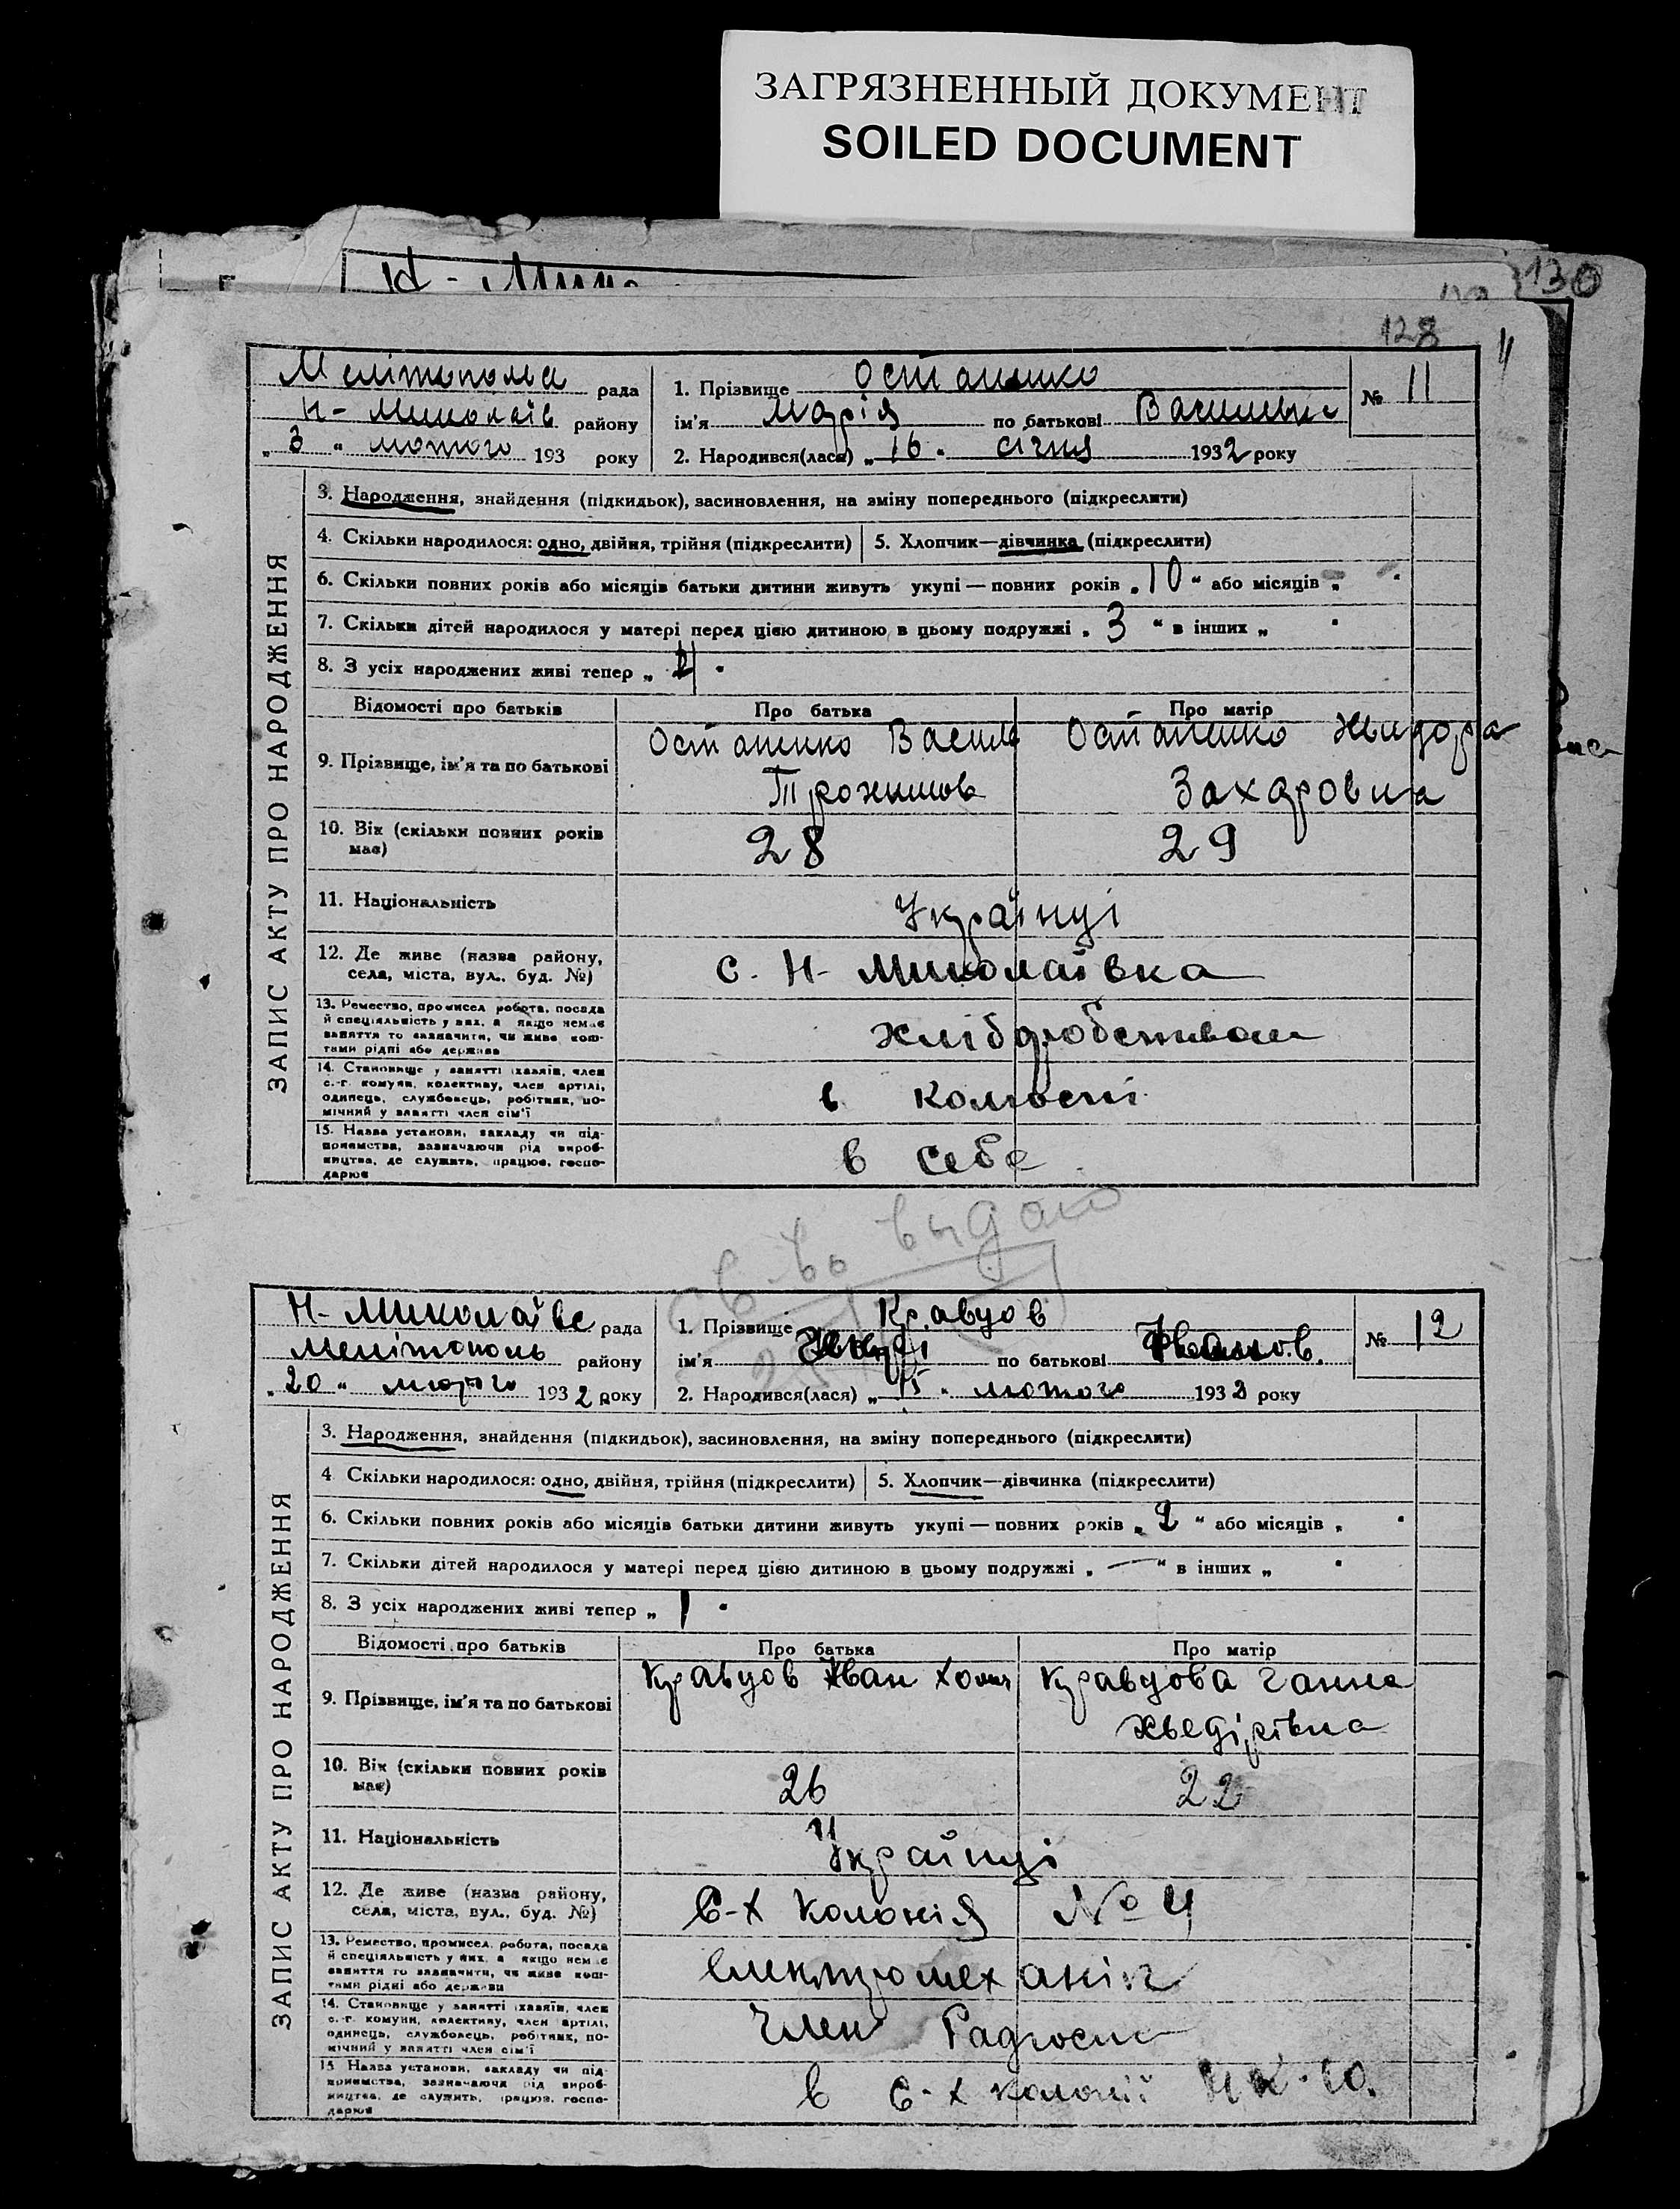 ЗАГРЯЗНЕННЫЙ ДОКУМЕНТ
SOILED DOCUMENT
130
128
11
Мелітополя рада
Н-Миколаїв району
„3“ лютого 193 року
1. Прізвище Остапенко
ім'я Марія по батькові Васильвна
2. Народився(лася) „16" січня 1932 року
№ 11
ЗАПИС АКТУ ПРО НАРОДЖЕННЯ
3. Народження, знайдення (підкидьок), засиновлення, на зміну попереднього (підкреслити)
4. Скільки народилося: одно, двійня, трійня (підкреслити) 5. Хлопчик—дівчинка (підкреслити)
6. Скільки повних років або місяців батьки дитини живуть укупі — повних років „10“ або місяців „ "
7. Скільки дітей народилося у матері перед цією дитиною в цьому подружжі „3“ в інших „ "
8. З усіх народжених живі тепер „4"
Відомості про батьків Про батька Про матір
9. Прізвище, ім'я та по батькові Остапенко Василь Остапенко Хвидора
Трохимов Захаровна
10. Вік (скільки повних років має) 28 29
11. Національність Українці
12. Де живе (назва району, села, міста, вул., буд. №) с. Н-Миколаївка
13. Ремество, промисел, робота, посада
й спеціяльність у них, а якщо немає
заняття то зазначити, чи живе кош-
тами рідні або держави хлібдробством
14. Становище у занятті (хазяїн, член
с.-г. комуни, колективу, член артілі,
одинець, службовець, робітник, по-
мічний у занятті член сім'ї в колгоспі
15. Назва установи, закладу чи під-
приємства, зазначаючи рід вироб-
ництва, де служить, працює, госпо-
дарює в себе
св-во выдано
Н-Миколаївс рада
Мелітополь району
„20“ лютого 1932 року
1. Прізвище Кравцов
ім'я по батькові Иванов.
2. Народився(лася) „ " лютого 1932 року
№ 12
ЗАПИС АКТУ ПРО НАРОДЖЕННЯ
3. Народження, знайдення (підкидьок), засиновлення, на зміну попереднього (підкреслити)
4. Скільки народилося: одно, двійня, трійня (підкреслити) 5. Хлопчик—дівчинка (підкреслити)
6. Скільки повних років або місяців батьки дитини живуть укупі — повних років „2“ або місяців „ "
7. Скільки дітей народилося у матері перед цією дитиною в цьому подружжі „—“ в інших „ "
8. З усіх народжених живі тепер „1"
Відомості про батьків Про батька Про матір
9. Прізвище, ім'я та по батькові Кравцов Иван Хомич Кравцова Ганна
Хведірівна
10. Вік (скільки повних років має) 26 22
11. Національність Українці
12. Де живе (назва району, села, міста, вул., буд. №) С-Х Колонія №4
13. Ремество, промисел, робота, посада
й спеціяльність у них, а якщо немає
заняття то зазначити, чи живе кош-
тами рідні або держави електромеханік
14. Становище у занятті (хазяїн, член
с.-г. комуни, колективу, член артілі,
одинець, службовець, робітник, по-
мічний у занятті член сім'ї Член Радгоспа
15. Назва установи, закладу чи під-
приємства, зазначаючи рід вироб-
ництва, де служить, працює, госпо-
дарює в С-Х колонії НК-Ю.